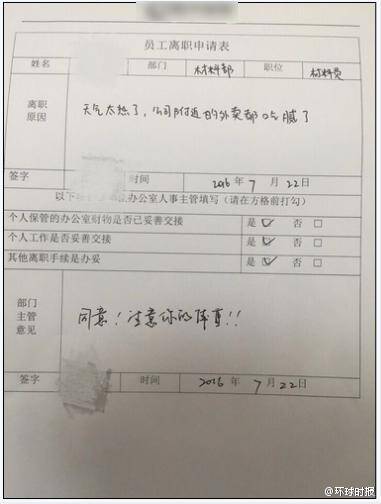 员工离职申请表
姓名 部门 材料部 职位 材料员
离职原因 天气太热了，公司附近的外卖都吃腻了
签字 时间 2016年7月22日
办公室人事主管填写（请在方格前打勾）
个人保管的办公室财物是否已妥善交接 是☑ 否□
个人工作是否妥善交接 是☑ 否□
其他离职手续是办妥 是☑ 否□
部门主管意见 同意！注意你的降真！！
签字 时间 2016年7月22日
@环球时报